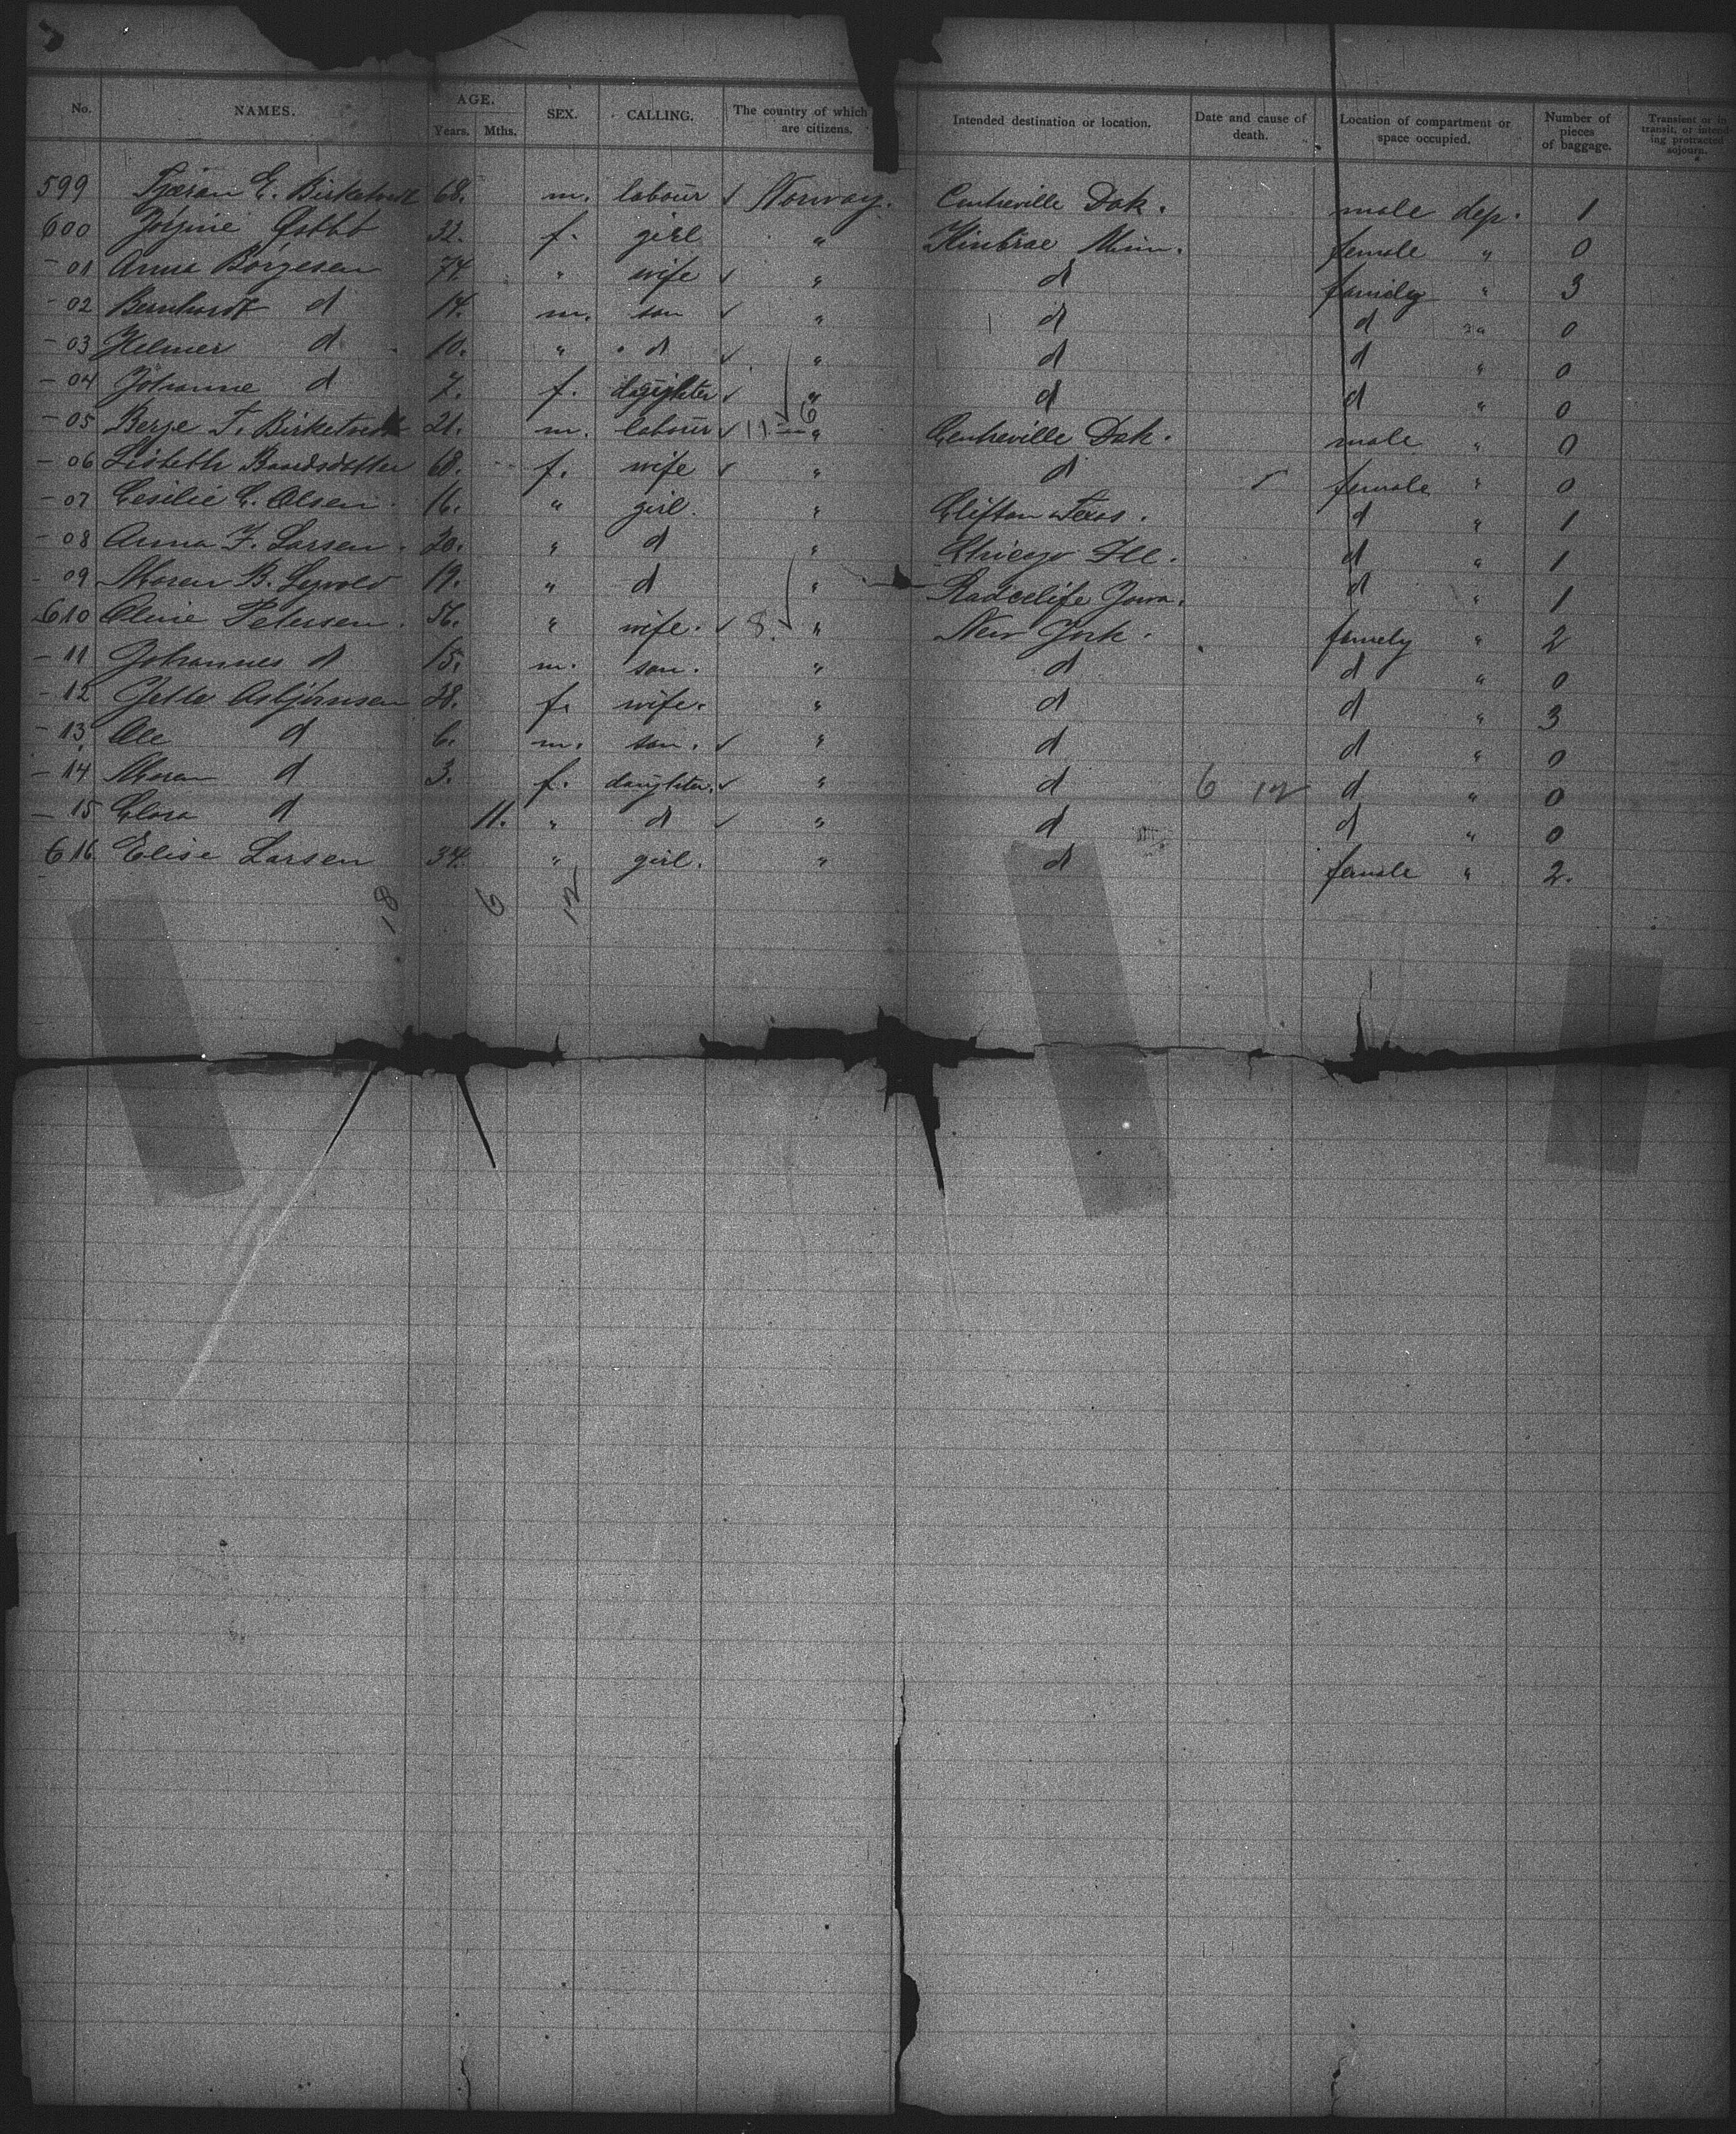 No. NAMES. AGE. Years. Mths. SEX. CALLING. The country of which are citizens. Intended destination or location. Date and cause of death. Location of compartment or space occupied. Number of pieces of baggage. Transient or in transit, or intend ing protracted sojourn.
599 E. 68. m. labour ✓ Norway. Centreville Dak. male dep. 1
600 32. f. girl " Minn. female " 0
- 01 Anna Borgesen 74. " wife ✓ " d family " 3
- 02 Bernhardt d 14. m. son ✓ " d d " 0
- 03 Helmer d 10. " d ✓ " d d " 0
- 04 Johanne d 7. f. daughter ✓ " d d " 0
- 05 21. m. labour ✓ 11 6 " Centreville Dak. male " 0
- 06 Lisbeth 68. f. wife ✓ " d female " 0
- 07 Cesilie C. Olsen 16. " girl. " Clifton Texas. d " 1
- 08 Anna F. Larsen. 20. " d " Chicago Ill. d " 1
- 09 Maren B. 19. " d " Radcelife Jowa. d " 1
610 Oline Petersen. 56. " wife. ✓ 8. " New York. family " 2
- 11 Johannes d 15. m. son. " d d " 0
- 12 Asbjörnsen 28. f. wife. " d d " 3
- 13 Ole d 6. m. son. ✓ " d d " 0
- 14 Maren d 3. f. daughter. ✓ " d 6 12 d " 0
- 15 Clara d 11. " d ✓ " d d " 0
616 Elise Larsen 34. " girl. " d female " 2.
18 6 12